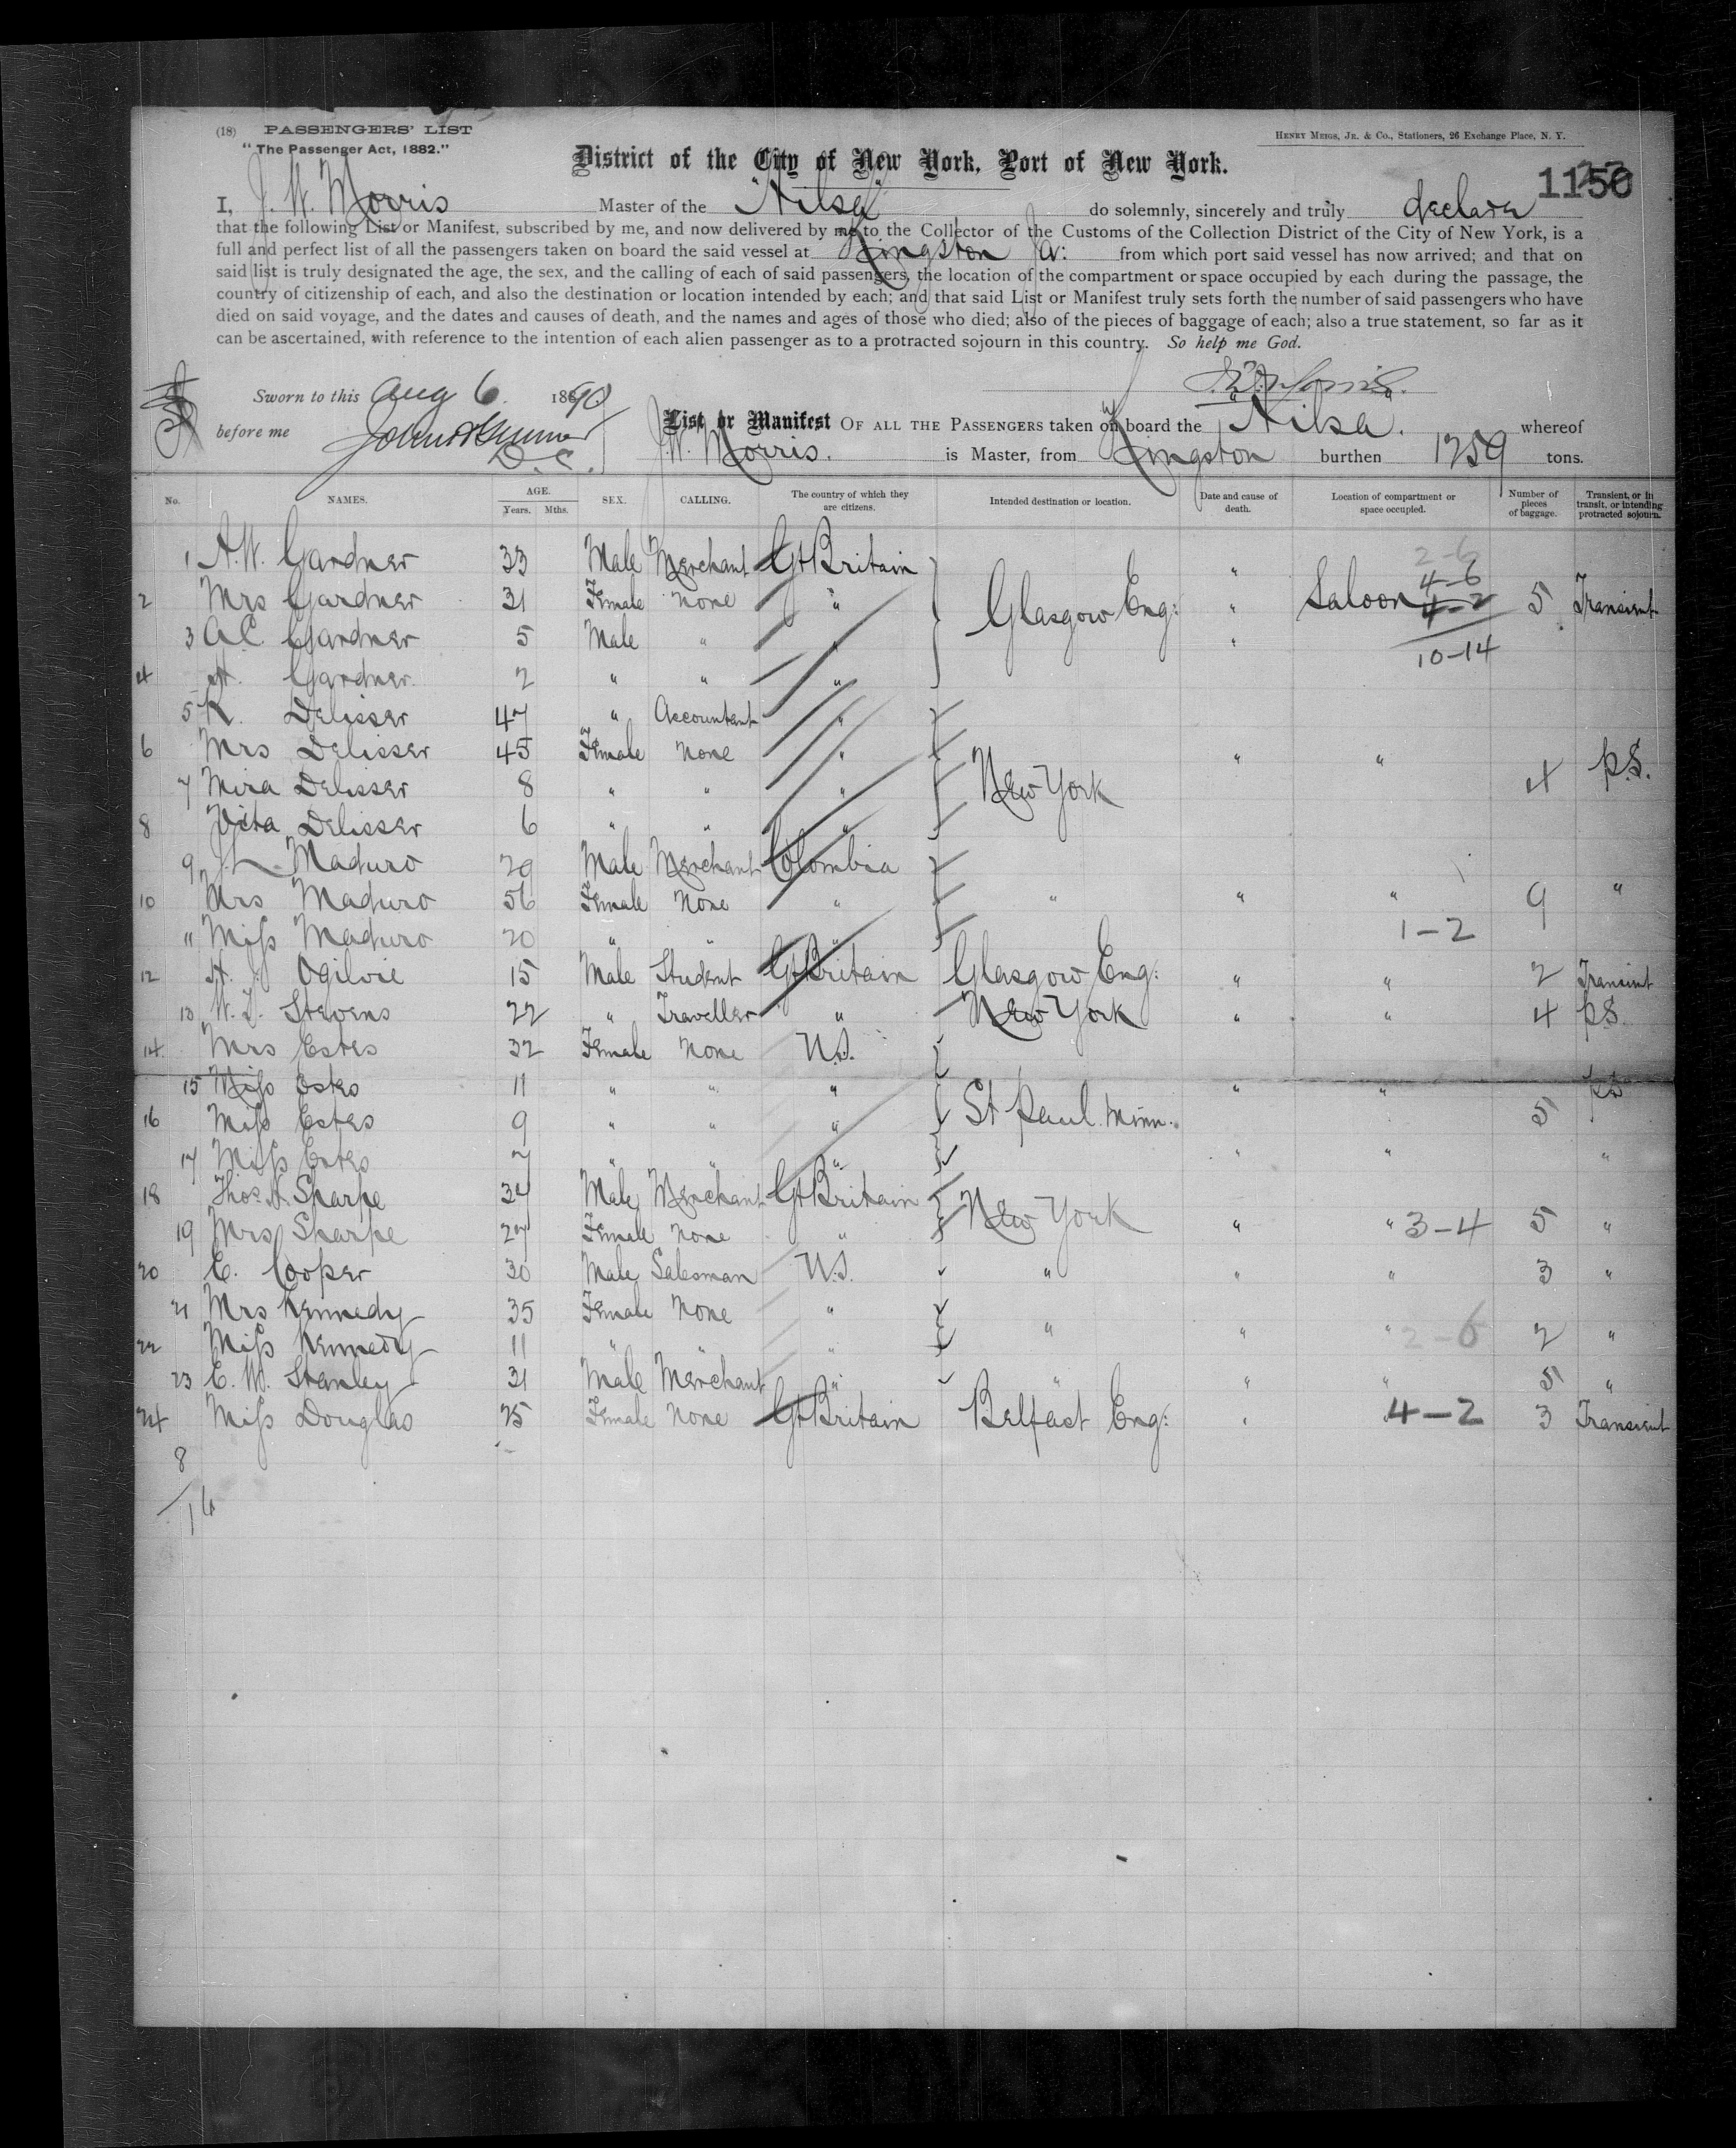 (18) PASSENGERS' LIST
HENRY MEIGS, JR. & CO., Stationers, 26 Exchange Place, N. Y.
"The Passenger Act, 1882."
District of the City of New York, Port of New York.
1150
I, J. W. Morris Master of the "Ailsa" do solemnly, sincerely and truly declare
that the following List or Manifest, subscribed by me, and now delivered by me to the Collector of the Customs of the Collection District of the City of New York, is a
full and perfect list of all the passengers taken on board the said vessel at Kingston Ja: from which port said vessel has now arrived; and that on
said list is truly designated the age, the sex, and the calling of each of said passengers, the location of the compartment or space occupied by each during the passage, the
country of citizenship of each, and also the destination or location intended by each; and that said List or Manifest truly sets forth the number of said passengers who have
died on said voyage, and the dates and causes of death, and the names and ages of those who died; also of the pieces of baggage of each; also a true statement, so far as it
can be ascertained, with reference to the intention of each alien passenger as to a protracted sojourn in this country. So help me God.
Sworn to this Aug 6. 1890
before me
D.C.
List or Manifest OF ALL THE PASSENGERS taken on board the "Ailsa". whereof
J.W. Morris. is Master, from Kingston burthen 1259 tons.
No. NAMES. AGE. Years. Mths. SEX. CALLING. The country of which they are citizens. Intended destination or location. Date and cause of death. Location of compartment or space occupied. Number of pieces of baggage. Transient, or in transit, or intending protracted sojourn.
1 A.W. Gardner 33 Male Merchant Gt Britain " 2-6
2 Mrs Gardner 31 Female None " Glasgow Eng: " Saloon 4-6 4-2 5 Transient
3 A.C. Gardner 5 Male " " " 10-14
4 A. Gardner 2 " " "
5 R. Delisser 47 " Accountant "
6 Mrs Delisser 45 Female None " " "
7 Mira Delisser 8 " " " New York 4 P.S.
8 Vita Delisser 6 " " "
9 J.L. Maduro 29 Male Merchant Colombia
10 Mrs Maduro 56 Female None " " " " 9 "
11 Miss Maduro 20 " " " 1-2
12 A. J. Ogilvie 15 Male Student Gt Britain Glasgow Eng: " " 2 Transient
13 W. L. Stevens 22 " Traveller " New York " " 4 P.S.
14 Mrs Estes 32 Female None U.S.
15 Miss Estes 11 " " " " " P.S.
16 Miss Estes 9 " " " St Paul. Minn. 5
17 Miss Estes 7 " " " " " "
18 Thos. A. Sharpe 34 Male Merchant Gt Britain
19 Mrs Sharpe 27 Female None " New York " " 3-4 5 "
20 C. Cooper 30 Male Salesman U.S. " " " 3 "
21 Mrs Kennedy 35 Female None "
22 Miss Kennedy 11 " " " " " " 2-6 2 "
23 C. W. Stanley 31 Male Merchant " " " " 5 "
24 Miss Douglas 25 Female None Gt Britain Belfast Eng: " " 4-2 3 Transient
8
16